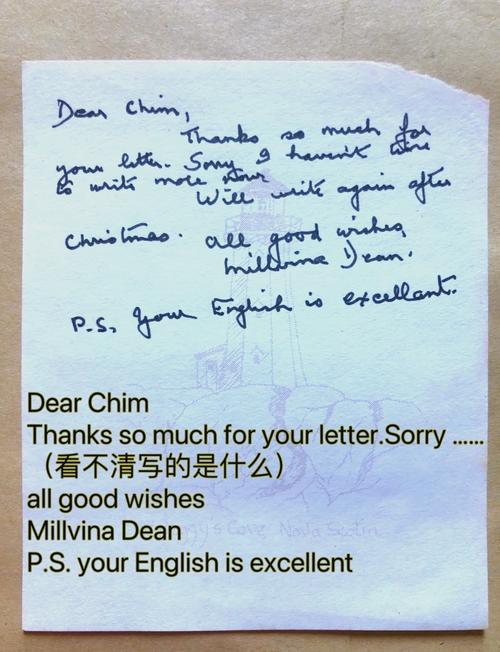 Dear Chim,
Thanks so much for
your letter. Sorry I haven't time
to write more now
Will write again after
Christmas. all good wishes,
Millvina Dean.
P.S. Your English is excellent.
Dear Chim
Thanks so much for your letter.Sorry ......
（看不清写的是什么）
all good wishes
Millvina Dean
P.S. your English is excellent
Peggy's Cove Nova Scotia